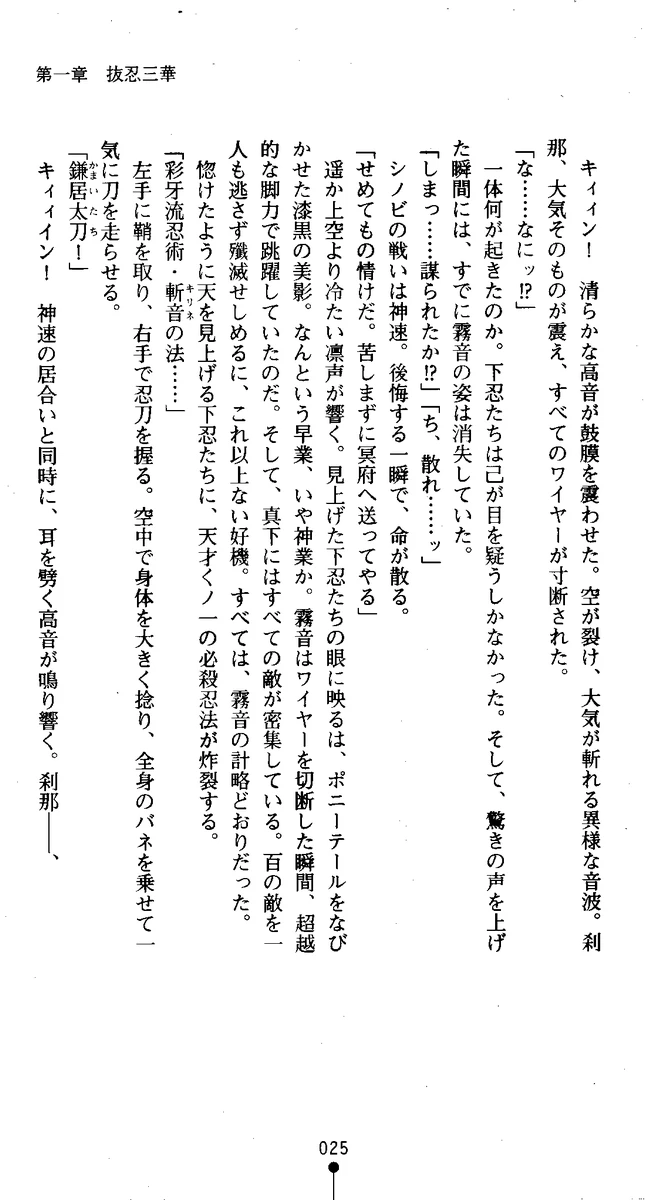 第一章　抜忍三華
　キィィン！　清らかな高音が鼓膜を震わせた。空が裂け、大気が斬れる異様な音波。刹
那、大気そのものが震え、すべてのワイヤーが寸断された。
「な……なにッ!?」
　一体何が起きたのか。下忍たちは己が目を疑うしかなかった。そして、驚きの声を上げ
た瞬間には、すでに霧音の姿は消失していた。
「しまっ……謀られたか!?」「ち、散れ……ッ」
　シノビの戦いは神速。後悔する一瞬で、命が散る。
「せめてもの情けだ。苦しまずに冥府へ送ってやる」
　遥か上空より冷たい凛声が響く。見上げた下忍たちの眼に映るは、ポニーテールをなび
かせた漆黒の美影。なんという早業、いや神業か。霧音はワイヤーを切断した瞬間、超越
的な脚力で跳躍していたのだ。そして、真下にはすべての敵が密集している。百の敵を一
人も逃さず殲滅せしめるに、これ以上ない好機。すべては、霧音の計略どおりだった。
　惚けたように天を見上げる下忍たちに、天才くノ一の必殺忍法が炸裂する。
「彩牙流忍術・斬音の法……」
キリネ
　左手に鞘を取り、右手で忍刀を握る。空中で身体を大きく捻り、全身のバネを乗せて一
気に刀を走らせる。
「鎌居太刀！」
かまいたち
　キィィイン！　神速の居合いと同時に、耳を劈く高音が鳴り響く。刹那――、
025